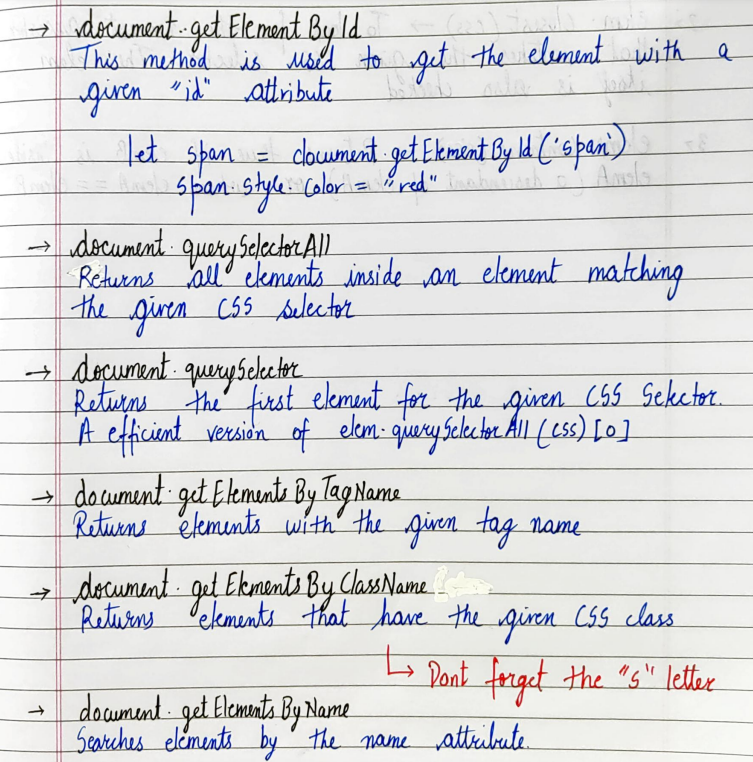 → document.getElementById
This method is used to get the element with a
given "id" attribute
let span = document.getElementById('span')
span.style.color = "red"
→ document.querySelectorAll
Returns all elements inside an element matching
the given CSS selector
→ document.querySelector
Returns the first element for the given CSS Selector.
A efficient version of elem.querySelectorAll(css)[0]
→ document.getElementsByTagName
Returns elements with the given tag name
→ document.getElementsByClassName
Returns elements that have the given CSS class
↳ Dont forget the "s" letter
→ document.getElementsByName
Searches elements by the name attribute.